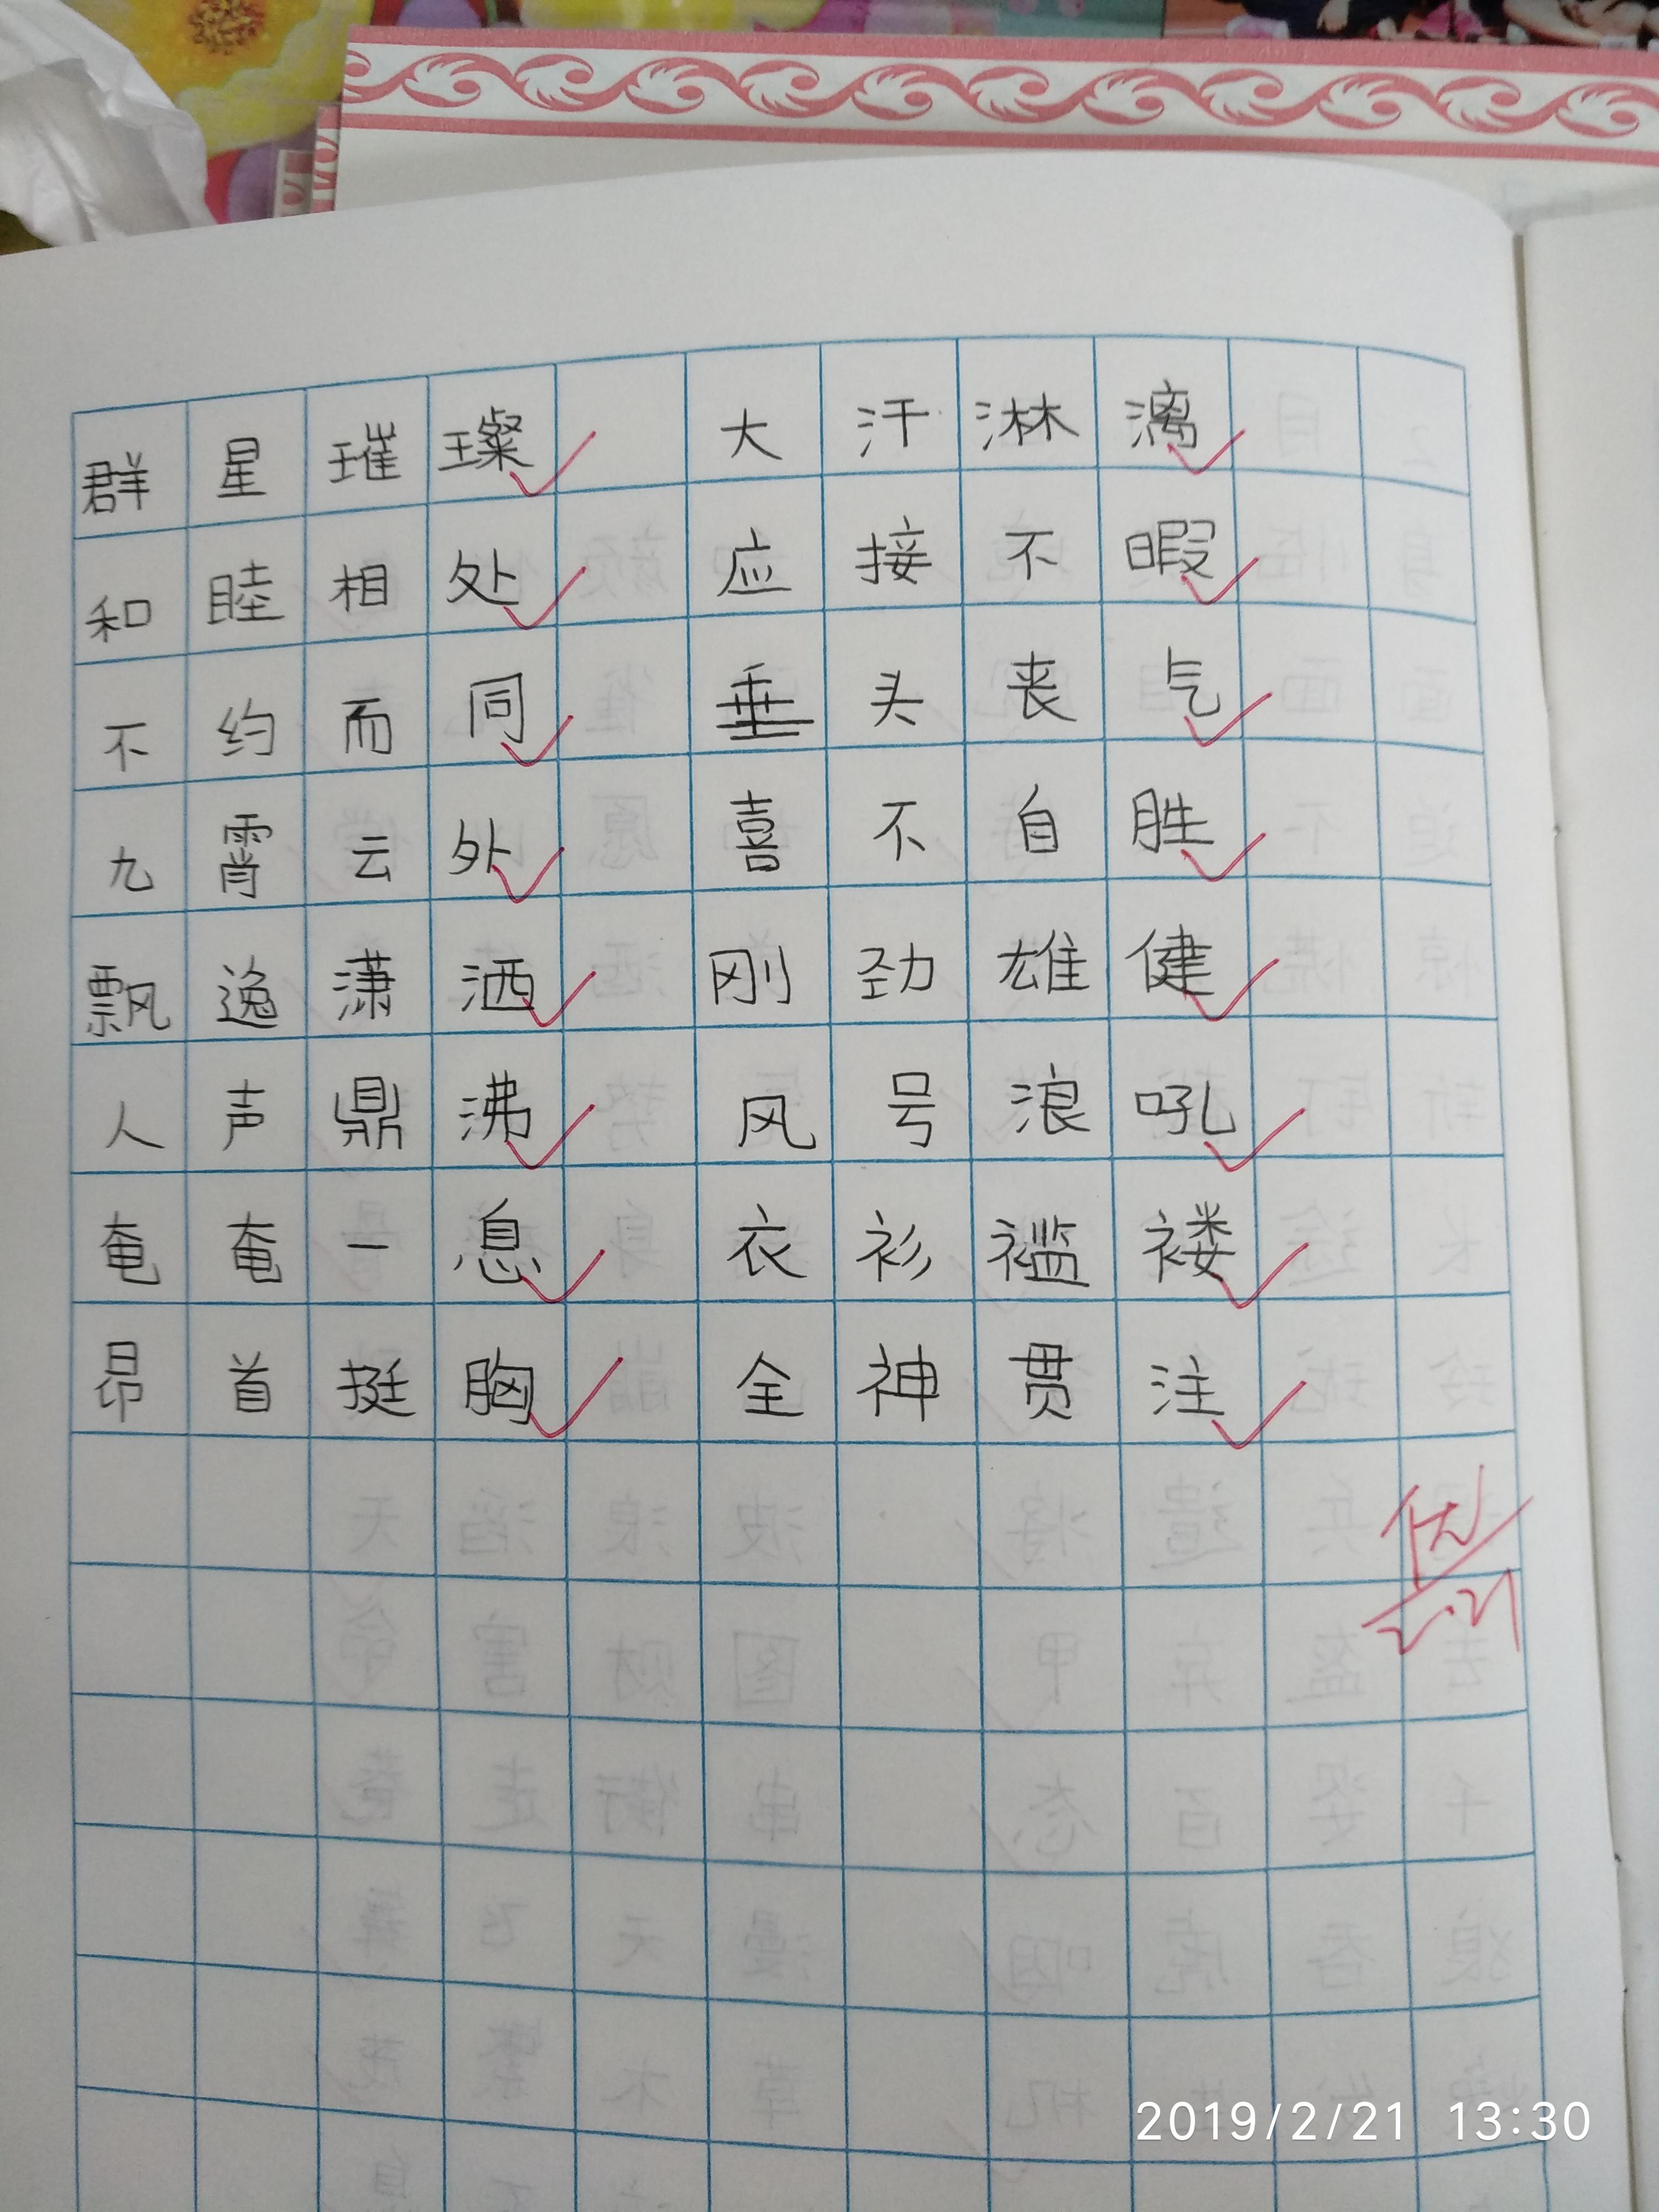 群星璀璨 大汗淋漓
和睦相处 应接不暇
不约而同 垂头丧气
九霄云外 喜不自胜
飘逸潇洒 刚劲雄健
人声鼎沸 风号浪吼
奄奄一息 衣衫褴褛
昂首挺胸 全神贯注
优
2.21
2019/2/21 13:30